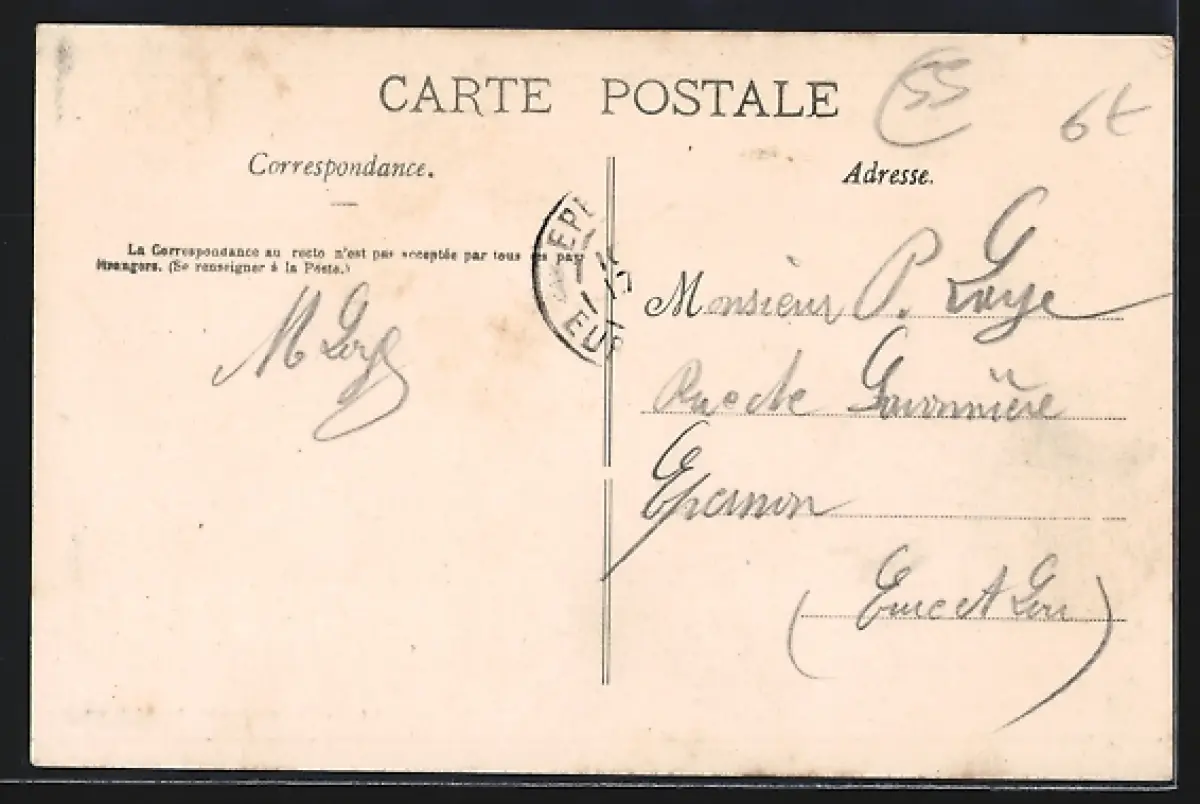 CARTE POSTALE
55
6t
Correspondance.
Adresse.
La Correspondance au recto n'est pas acceptée par tous les pays
étrangers. (Se renseigner à la Poste.)
EPE
11
17
EUR
M Loye
Monsieur P. Loye
Rue de
Epernon
(Eure et Loir)